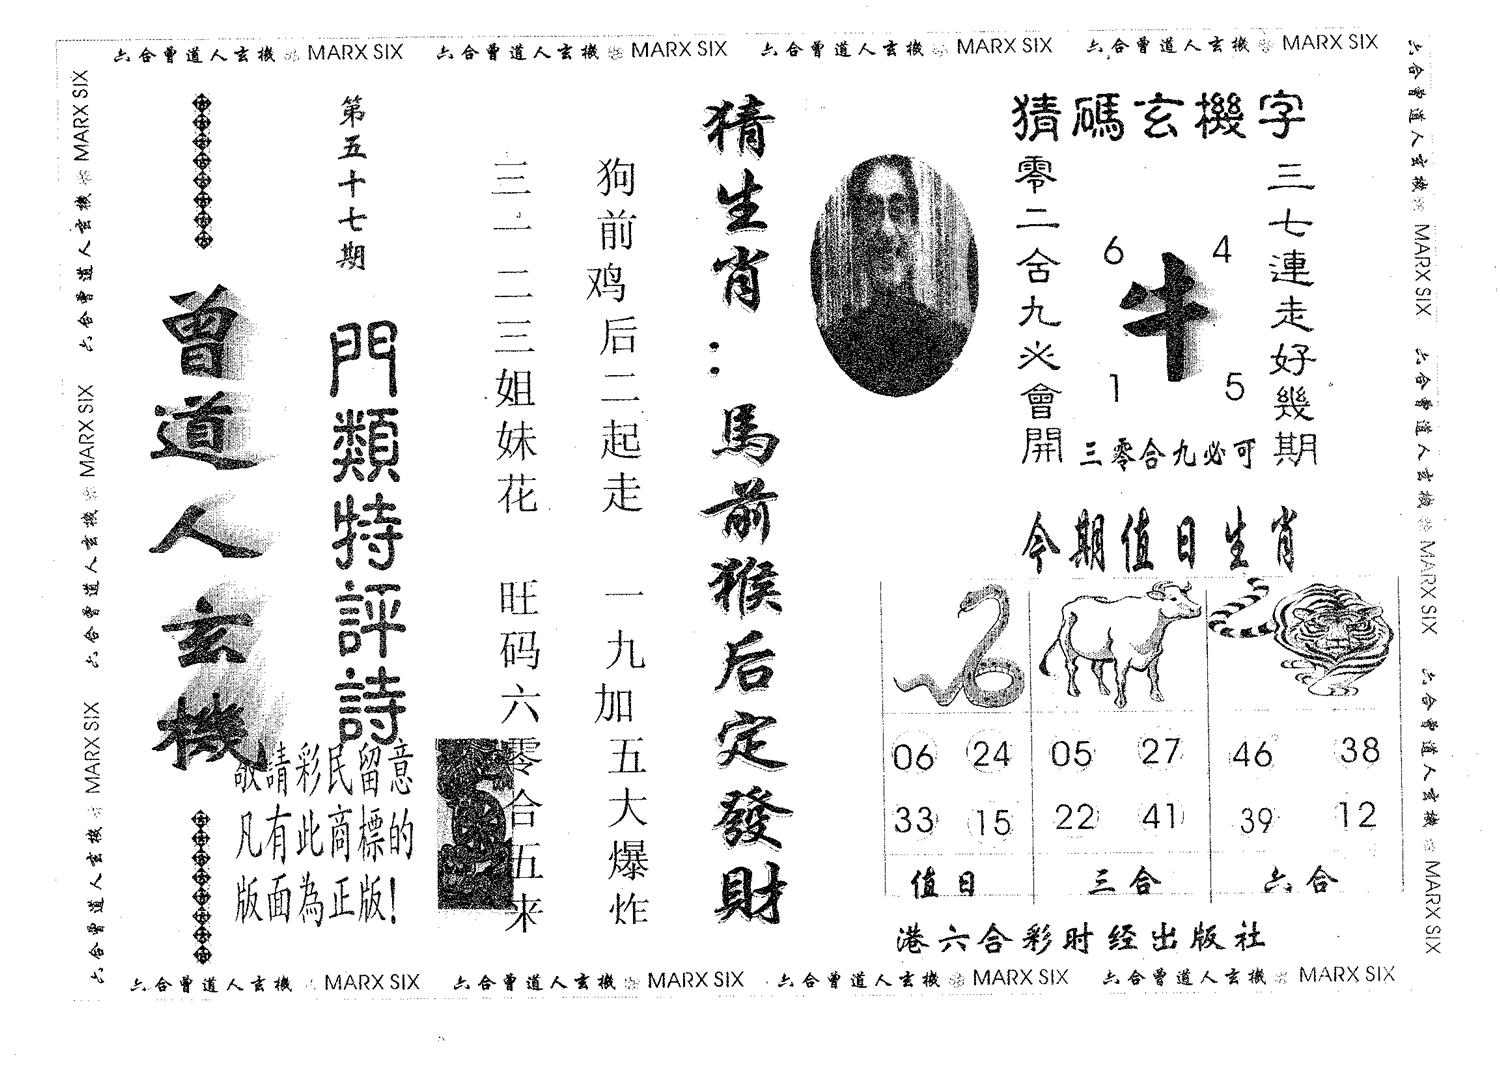 六合曾道人玄機 MARX SIX 六合曾道人玄機 MARX SIX 六合曾道人玄機 MARX SIX 六合曾道人玄機 MARX SIX
猜碼玄機字
三七連走好幾期
6 4
牛
1 5
三零合九必可
零二舍九必會開
猜生肖：馬前猴后定發財
狗前鸡后二起走 一九加五大爆炸
三一二三姐妹花 旺码六零合五来
第五十七期
門類特評詩
曾道人玄機
敬請彩民留意
凡有此商標的
版面為正版!
今期值日生肖
06 24 05 27 46 38
33 15 22 41 39 12
值日 三合 六合
港六合彩时经出版社
六合曾道人玄機 MARX SIX 六合曾道人玄機 MARX SIX 六合曾道人玄機 MARX SIX
六合曾道人玄機 MARX SIX 六合曾道人玄機 MARX SIX 六合曾道人玄機 MARX SIX
六合曾道人玄機 MARX SIX 六合曾道人玄機 MARX SIX 六合曾道人玄機 MARX SIX 六合曾道人玄機 MARX SIX